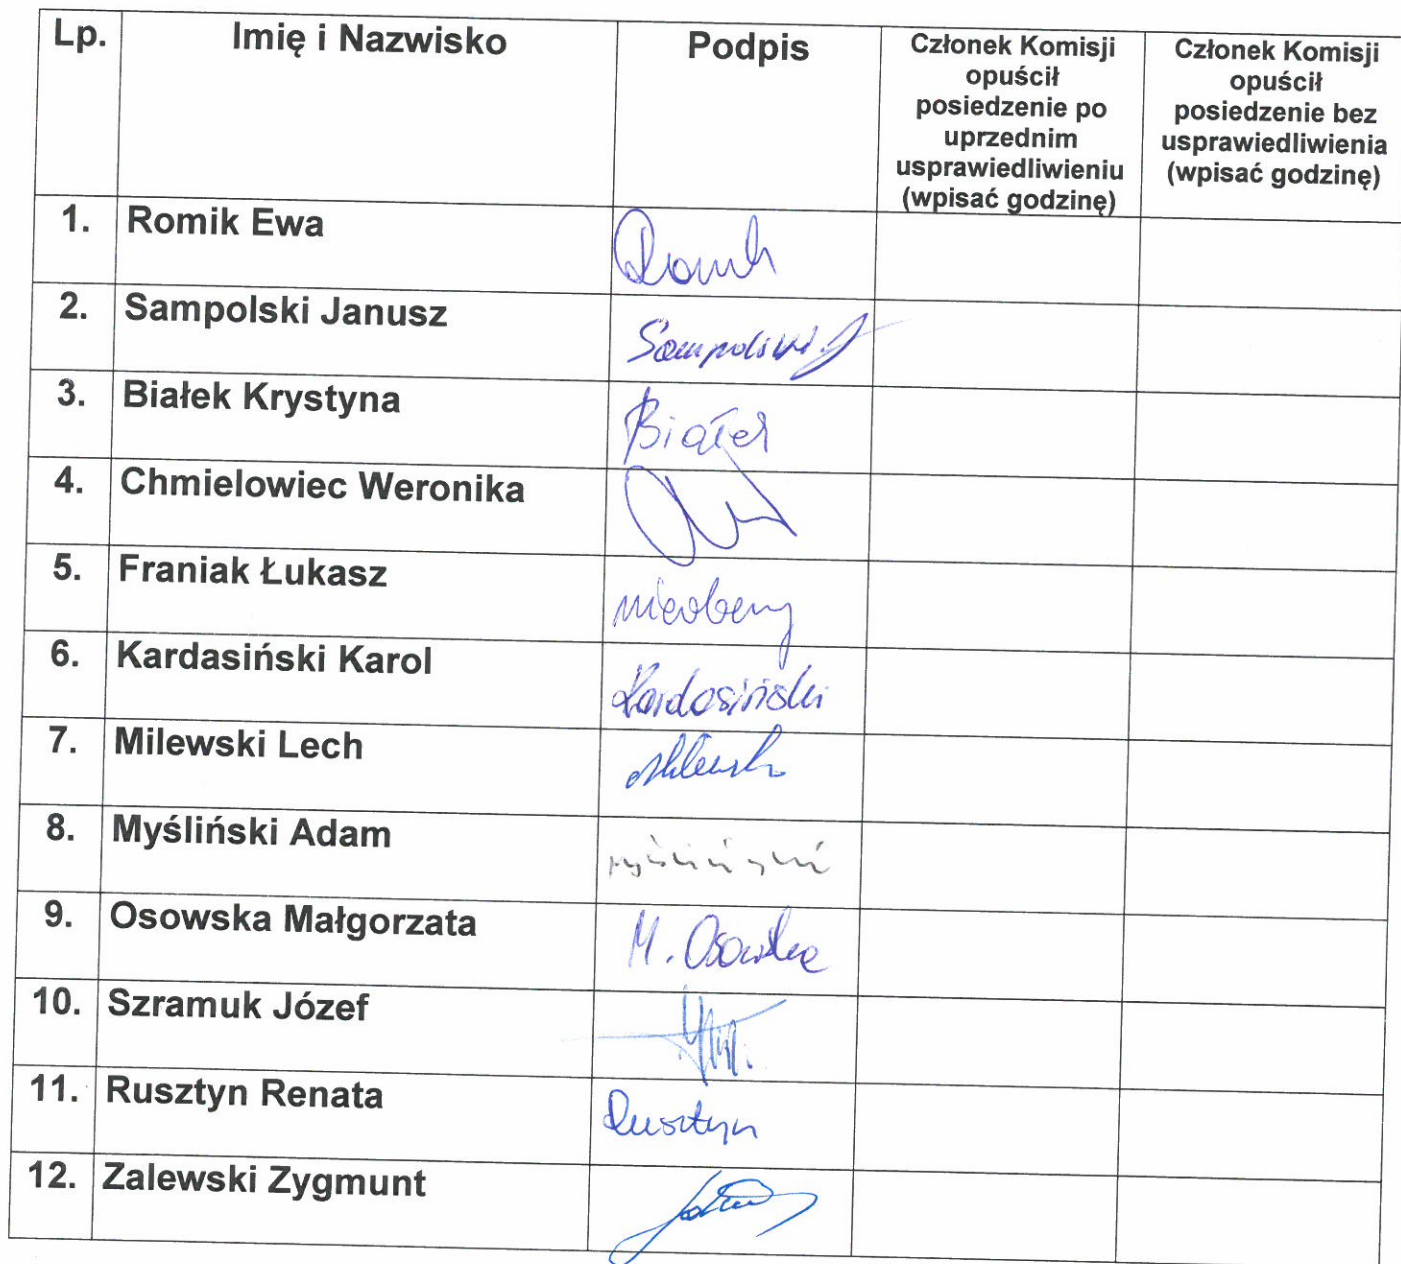 Lp. Imię i Nazwisko Podpis Członek Komisji opuścił posiedzenie po uprzednim usprawiedliwieniu (wpisać godzinę) Członek Komisji opuścił posiedzenie bez usprawiedliwienia (wpisać godzinę)
1. Romik Ewa Romik
2. Sampolski Janusz Sampolski J
3. Białek Krystyna Białek
4. Chmielowiec Weronika
5. Franiak Łukasz nieobecny
6. Kardasiński Karol Kardasiński
7. Milewski Lech Milewski
8. Myśliński Adam Myśliński
9. Osowska Małgorzata M. Osowska
10. Szramuk Józef
11. Rusztyn Renata Rusztyn
12. Zalewski Zygmunt